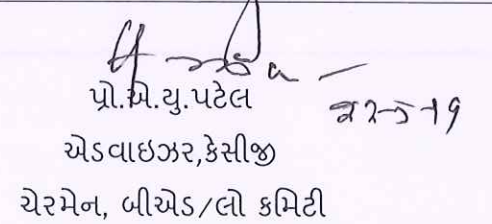 પ્રો.એ.યુ.પટેલ
એડવાઇઝર,કેસીજી
ચેરમેન, બીએડ/લો કમિટી